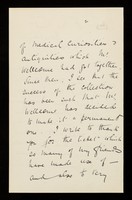 of Medical Curiosities &
Antiquities which Mr
Wellcome had got together
since then; I see that the
success of the Collection
has been such that Mr
Wellcome has decided
to make it a permanent
one. I write to thank
you for the ticket which
so many of my friends
have made use of —
and also to say